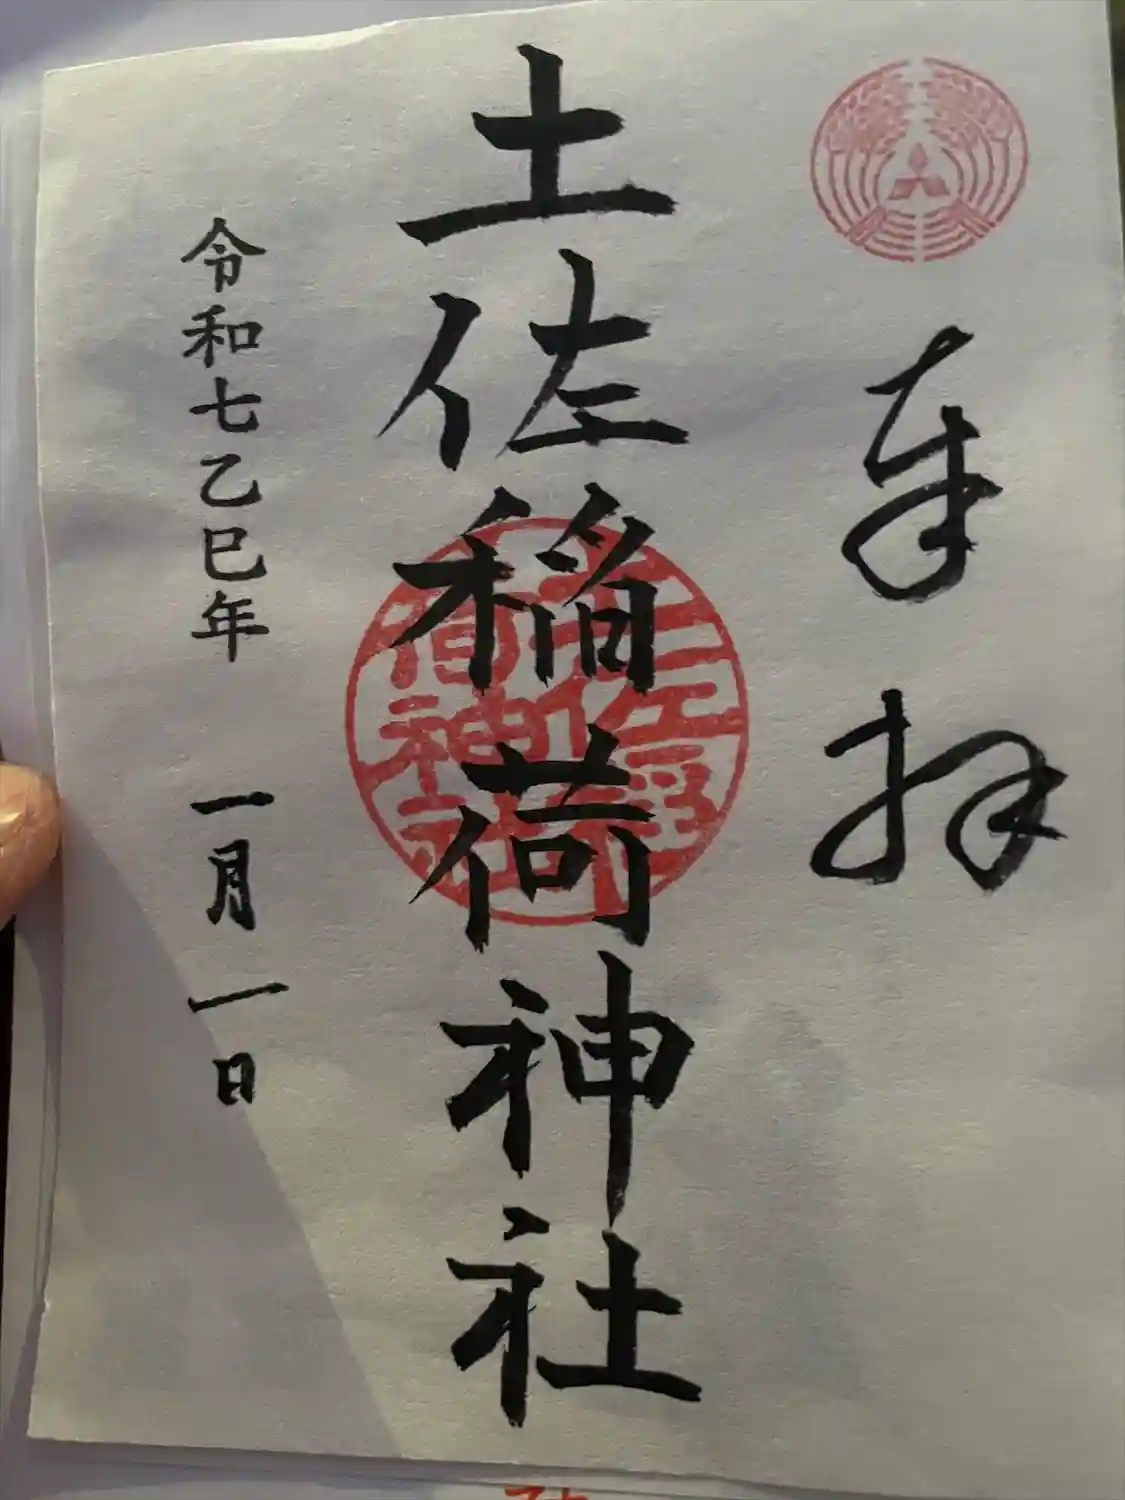 奉拝
土佐稲荷神社
土佐稲荷神社
令和七乙巳年 一月一日